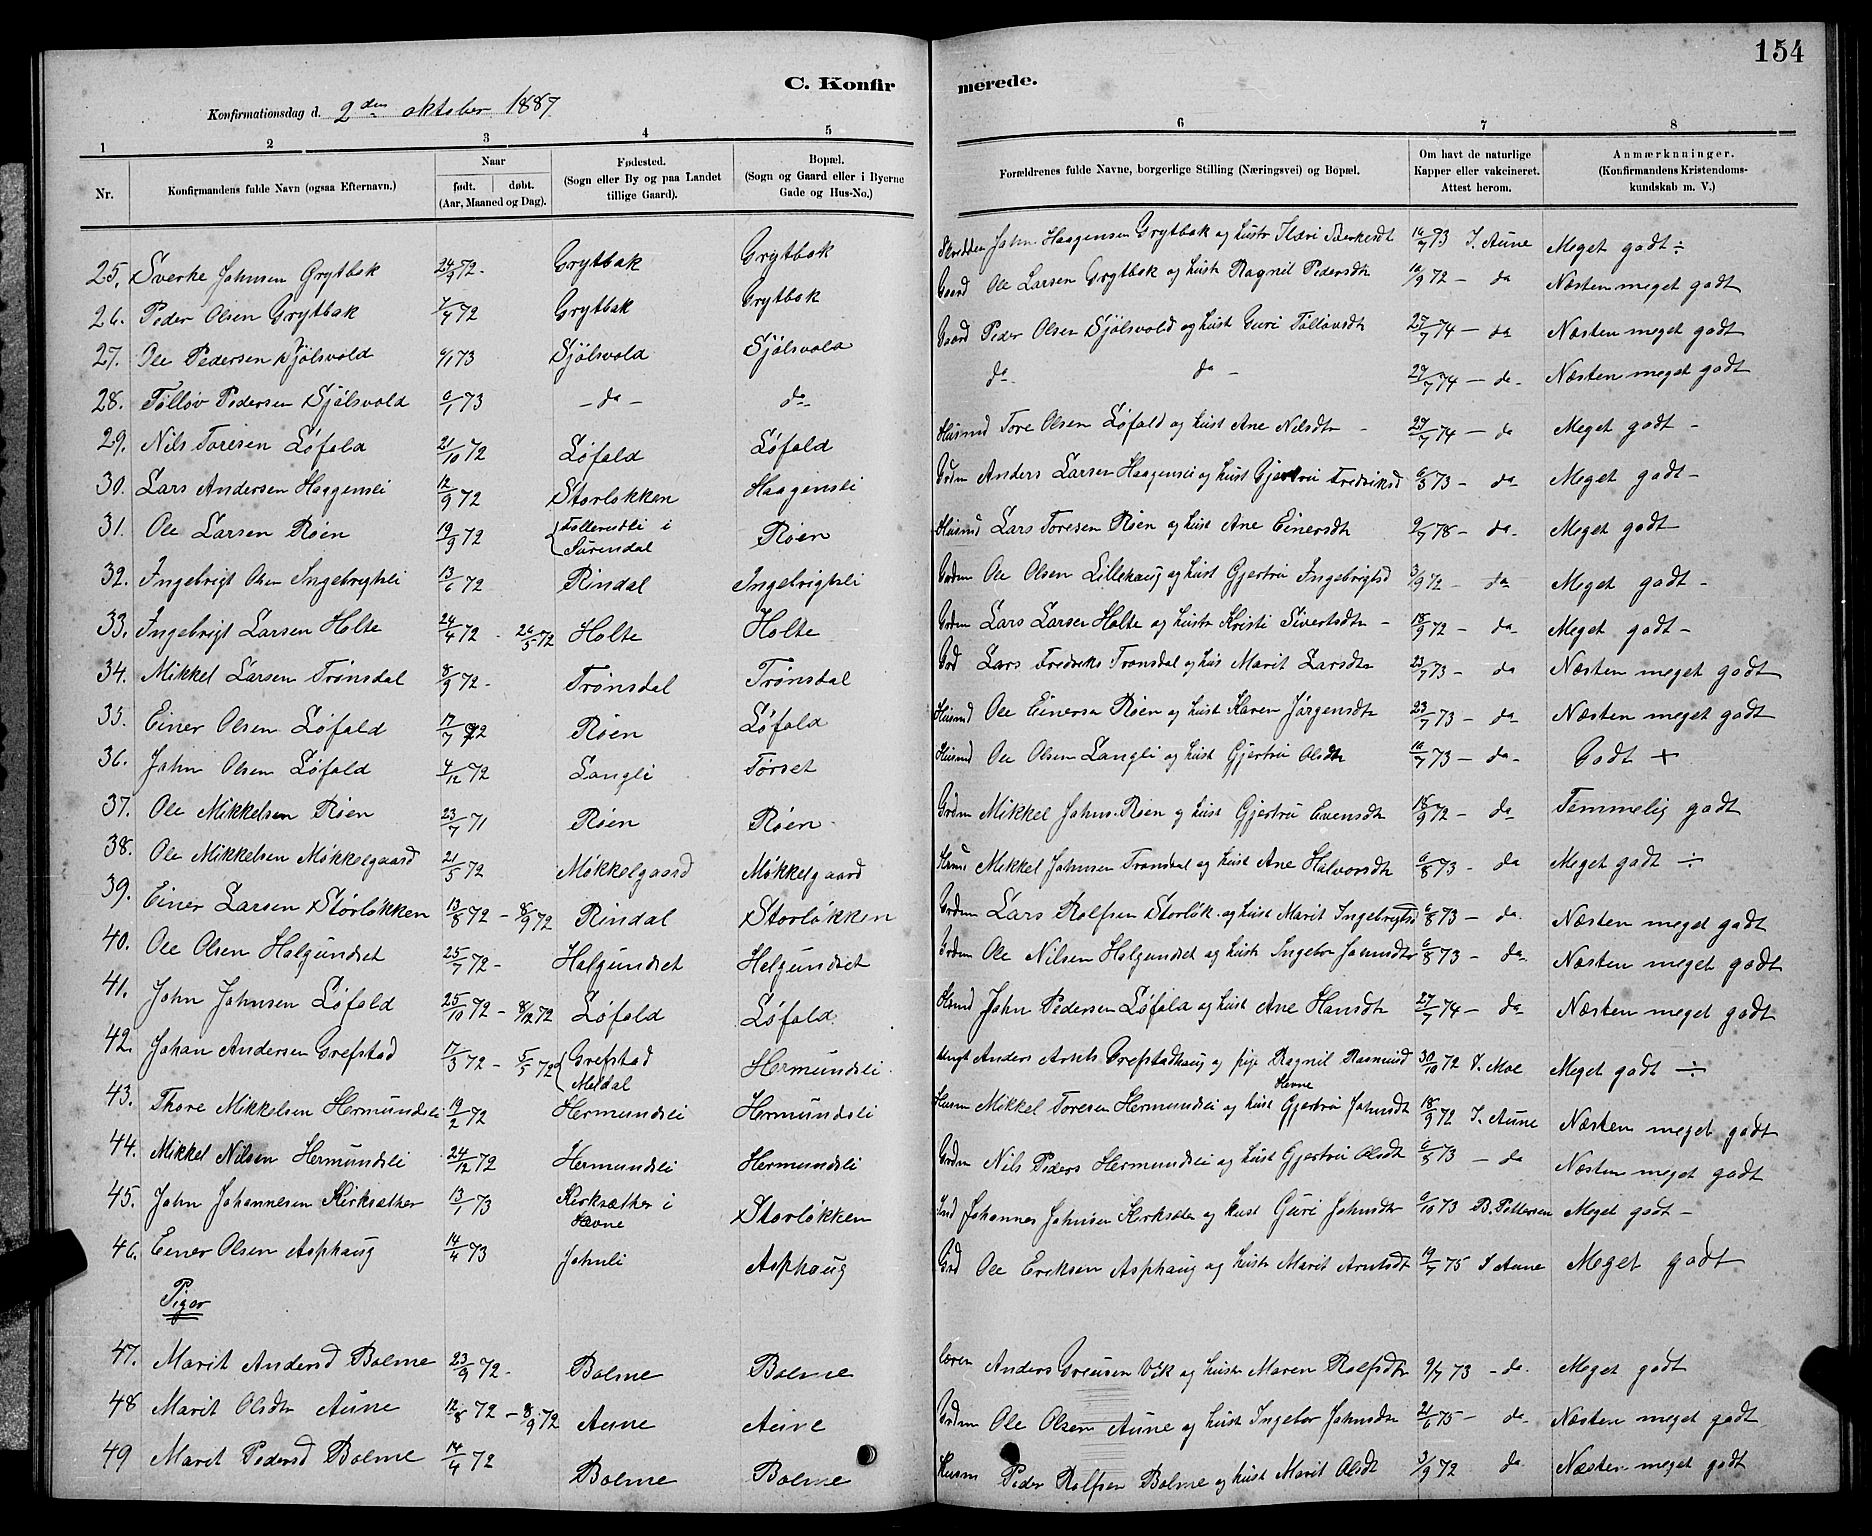 154
C. Konfirmerede.
Konfirmationsdag d. 2den oktober 1887.
1 2 3 4 5 6 7 8
Nr. Konfirmandens fulde Navn (ogsaa Efternavn.) Naar født. døbt. (Aar, Maaned og Dag). Fødested. (Sogn eller By og paa Landet tillige Gaard). Bopæl. (Sogn og Gaard eller i Byerne Gade og Hus-No.) Forældrenes fulde Navne, borgerlige Stilling (Næringsvei) og Bopæl. Om havt de naturlige Kapper eller vakcineret. Attest herom. Anmærknninger. (Konfirmandens Kristendomskundskab m. V.)
25. Sverke Johnsen Grytbak 24/9 72. Grytbak Grytbak John Haagensen Grytbak og hustr 10/7 73 I. Aune Meget godt ÷
26. Peder Olsen Grytbak 7/4 72 Grytbak Grytbak Gaard Ole Larsen Grytbak og hustr Ragnil Pedersdtr 10/9 72 – da Næsten meget godt
27. Ole Pedersen Sjølsvold 6/1 73 Sjølsvold Sjølsvold Gaard Peder Olsen Sjølsvold og hust Guri Tølløvsdtr 27/7 74 – da Næsten meget godt
28. Tølløv Pedersen Sjølsvold 6/1 73 – da – da da da – 27/7 74 – da – Næsten meget godt
29. Nils Toresen Løfald 21/10 72 Løfald Løfald Husmd Tore Olsen Løfald og hust Ane Nilsdtr – 27/7 74 – da Meget godt –
30. Lars Andersen Haagensli 12/9 72 Storløkken Haagensli Grdm Anders Larsen Haagensli og hust Gjertru Fredriksd 6/8 73 – da Meget godt –
31. Ole Larsen Røen 19/9 72 Surendal Røen Husmd Lars Toresen Røen og hust Ane Einersdtr 9/7 78 – da – Meget godt
32. Ingebrigt Olsen Ingebrigtsli 13/6 72 Rindal Ingebrigtsli Grdm Ole Olsen Lillehaug og hust Gjertru Ingebrigtsd 3/9 72 – da Meget godt –
33. Ingebrigt Larsen Holte 24/4 72 – 26/5 72 Holte Holte Grdm Lars Larsen Holte og hustr Kristi Sivertsdtr – 18/9 72 – da Meget godt –
34. Mikkel Larsen Trønsdal 8/9 72 – Trønsdal Trønsdal Grd Lars Fredriks Trønsdal og hus Marit Larsdtr 23/7 73 – da Næsten meget godt
35. Einer Olsen Løfald 17/7 72 Røen Løfald Husmd Ole Einersen Røen og hust Karen Jørgensdtr 23/7 73 – da Næsten meget godt
36. John Olsen Løfald 4/12 72 Langli Tørset Husmd Ole Olsen Langli og hust Gjertru Olsdtr 10/7 73 – da – Godt +
37. Ole Mikkelsen Røen 23/7 71 Røen Røen Grdm Mikkel Johns. Røen og hust Gjertru Evensdtr 18/9 72 – da Temmelig godt
38. Ole Mikkelsen Møkkelgaard 21/5 72 Møkkelgaard Møkkelgaard Mikkel Johnsen Trønsdal og hust Ane Halvorsdtr 6/8 73 – da Meget godt ÷
39. Einer Larsen Storløkken 13/8 72 – 8/9 72 Rindal Storløkken Grdm Lars Rolfsen Storløk. og hust Marit Ingebrigtsd 6/8 73 – da. Næsten meget godt
40. Ole Olsen Halgundset 25/7 72 – Halgundset Helgundset Grdm Ole Nilsen Halgundset og hustr Ingebor Johnsdtr 6/8 73 – da Næsten meget godt
41. John Johnsen Løfald 25/10 72 – 8/12 72 Løfald Løfald Husmd John Pedersen Løfald og hust Ane Hansdtr 27/7 74 – da Næsten meget godt
42. Johan Andersen Grefstad 17/3 72 – 5/5 72 Grefstad Meldal Hermundsli. Ungk Anders Arnts Grefstadhaug og pige Ragnil Rasmusd 30/10 72 V. Moe Meget godt ÷
43. Thore Mikkelsen Hermundsli 19/2 72 Hermundsli Hermundsli Husm Mikkel Toresen Hermundsli og hust Gjertru Johnsdtr 18/9 72 I. Aune Næsten meget godt
44. Mikkel Nilsen Hermundsli 24/12 72 Hermundsli Hermundsli Grdm Nils Peders Hermundsli og hust Gjertru Olsdtr 6/8 73 – da Næsten meget godt
45. John Johannesen Kirksæther 13/1 73 Kirksæther i Hevne Storløkken Johannes Johnsen Kirksæter og hust Guri Johnsdtr 6/10 73 B. Pettersen Meget godt –
46. Einer Olsen Asphaug 14/4 73 Johnli Asphaug Grd Ole Eriksen Asphaug og hustr Marit Arntsdtr 19/7 75 I Aune Meget godt
Piger
47. Marit Andersd Bolme 23/9 72. Bolme Bolme Anders Vik og hustr Maren Rolfsdtr 9/7 73 – da. Meget godt
48 Marit Olsdtr Aune 12/8 72 – 8/9 72 Aune Aune Grdm Ole Olsen Aune og hust Ingebor Johnsdtr 21/6 75 – da Næsten meget godt
49 Marit Pedersd Bolme 14/4 72 Bolme Bolme Husm Peder Rolfsen Bolme og hust Marit Olsdt 3/9 72 da Næsten meget godt